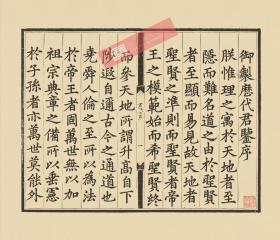 御製歷代君鑒序
朕惟理之寓於天地者至
隱而難名道之由於聖賢
者至顯而易見故天地者
聖賢之準則而聖賢者帝
王之模範始而希聖賢終
而參天地所謂升高自下
陟遐自邇古今之通道也
堯舜人倫之至所以為法
於帝王者固萬世無以加
祖宗典章之備所以垂憲
於子孫者亦萬世莫能外